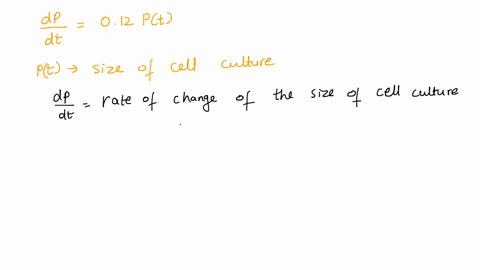 dP/dt = 0.12 P(t)
P(t) → size of cell culture
dP/dt = rate of change of the size of cell culture